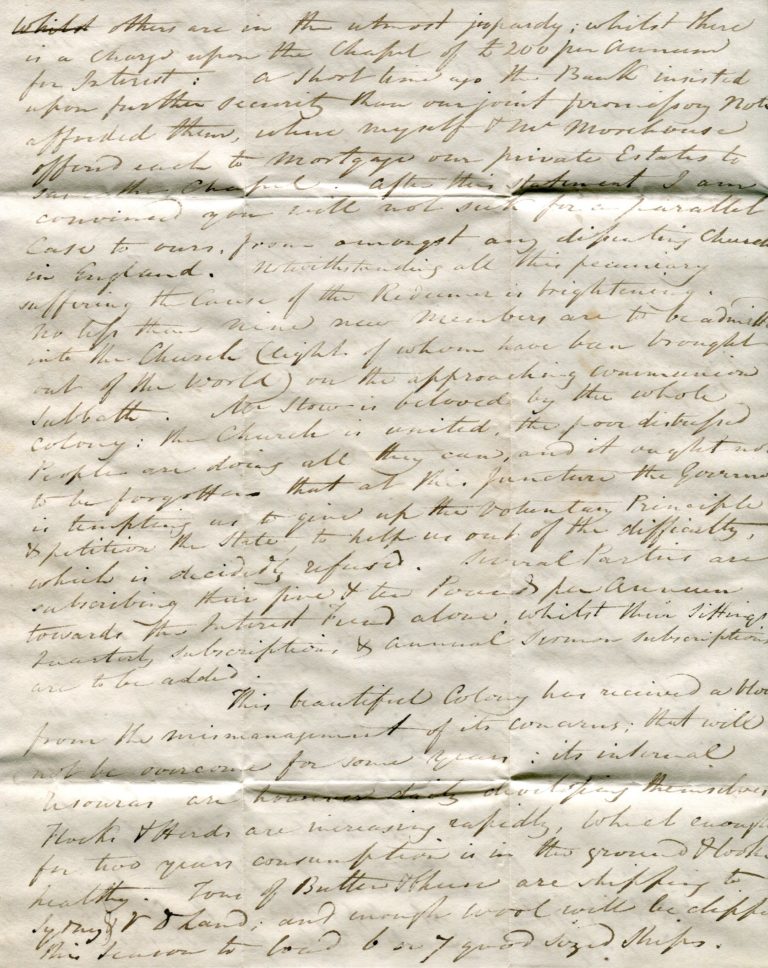 Whilst others are in the utmost jeopardy; whilst there
is a charge upon the Chapel of £200 per Annum
for Interest: A short time ago the Bank insisted
upon further security than our joint promissory Note
afforded them, when myself & Mr Morehouse
offered each to Mortgage our private Estates to
save the Chapel. After this statement I am
convinced you will not seek for a parallel
Case to ours, from amongst any dissenting Church
in England. Notwithstanding all this pecuniary
suffering the Cause of the Redeemer is brightening.
No less than nine new Members are to be admitt
into the Church (eight of whom have been brought
out of the World) on the approaching communion
Sabbath. Mr Stow is beloved by the whole
colony: the Church is united, the poor distressed
People are doing all they can, and it ought not
to be forgotten that at this Juncture the Governor
is tempting us to give up the Voluntary Principle
& petition the State to help us out of the difficulty,
which is decidedly refused. Several Parties are
subscribing their five & ten Pounds per Annum
towards the Interest Fund alone, whilst their Sittings
Quarterly subscriptions & annual Sermon subscriptions
are to be added.
This beautiful Colony has received a blow
from the mismanagement of its concerns; that will
not be overcome for some Years: its internal
resources are however daily developing themselves
Flocks & Herds are increasing rapidly, Wheat enough
for two years consumption is in the ground & looks
healthy. Tons of Butter & Cheese are shipping to
Sydney & V D Land; and enough wool will be clipped
this Season to load 6 or 7 good sized Ships.